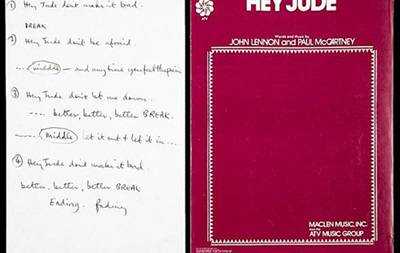 ① Hey Jude dont make it bad.
BREAK
② Hey Jude don't be afraid
---- middle — and any time you feel the pain
③ Hey Jude don't let me down..
.... better, better, better BREAK.
---- middle let it out & let it in...
④ Hey Jude dont make it bad.
better, better, better BREAK
Ending. fading
ATV
HEY JUDE
Words and Music by
JOHN LENNON and PAUL McCARTNEY
MACLEN MUSIC, INC.
ATV MUSIC GROUP